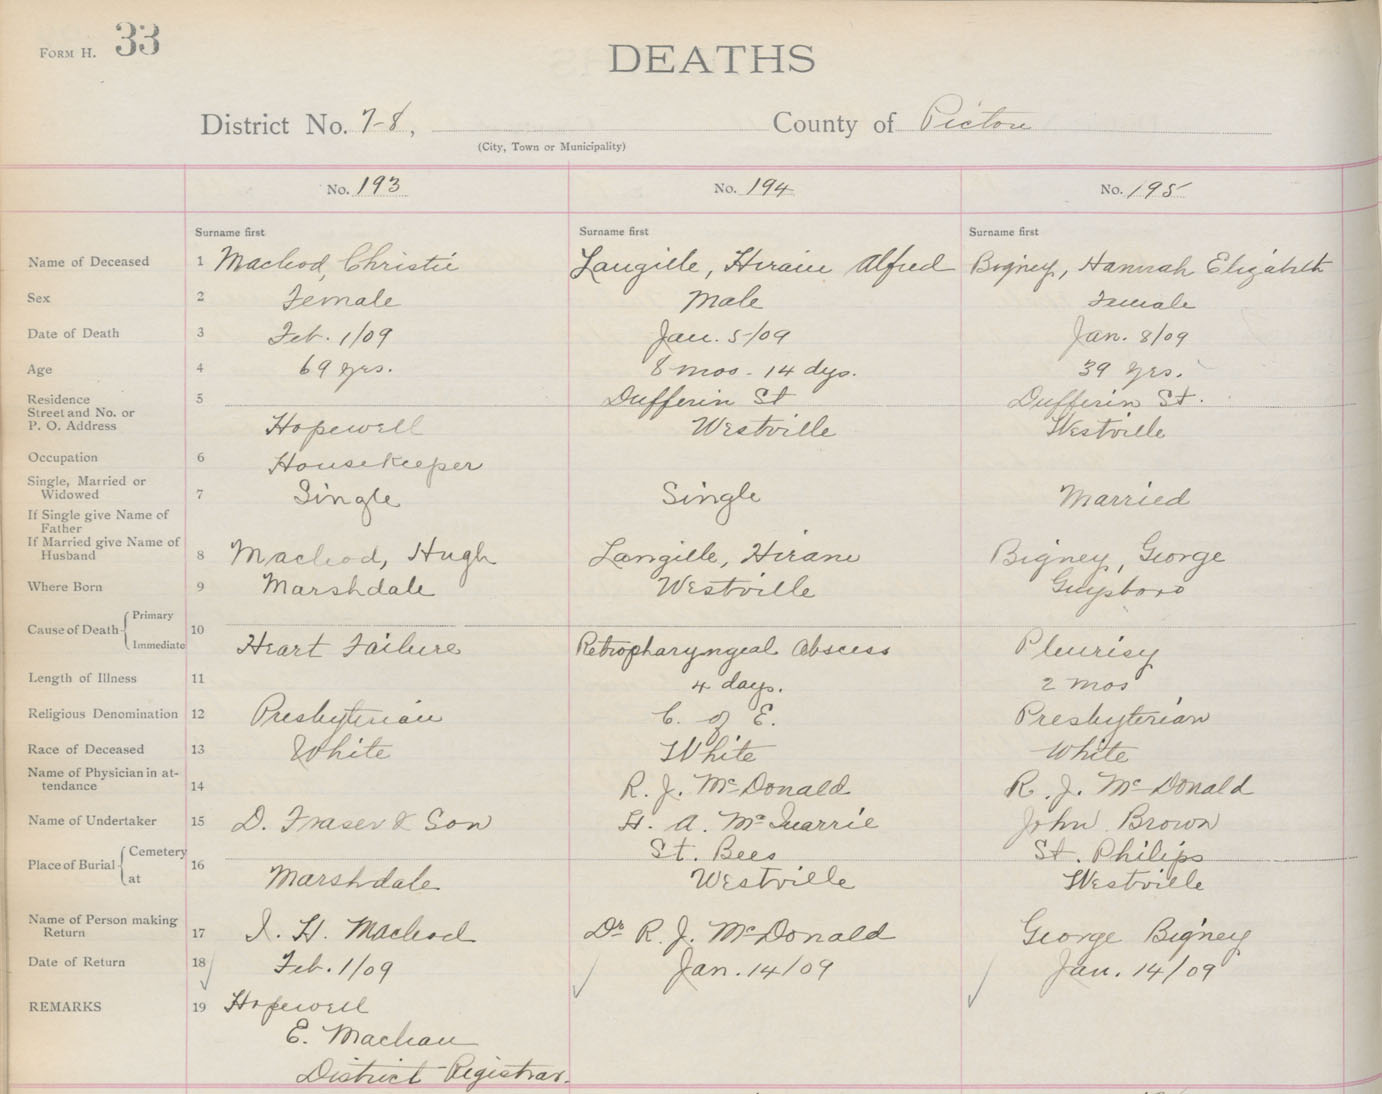 FORM H. 33
DEATHS
District No. 7-8, County of Pictou
(City, Town or Municipality)
No. 193 No. 194 No. 195
Surname first Surname first Surname first
Name of Deceased 1 Macleod, Christie Langille, Hiram Alfred Bigney, Hannah Elizabeth
Sex 2 Female Male Female
Date of Death 3 Feb. 1/09 Jan. 5/09 Jan. 8/09
Age 4 69 yrs. 8 mos - 14 dys. 39 yrs.
Residence 5 Dufferin St Dufferin St.
Street and No. or
P. O. Address Hopewell Westville Westville
Occupation 6 Housekeeper
Single, Married or
Widowed 7 Single Single Married
If Single give Name of
Father
If Married give Name of
Husband 8 Macleod, Hugh Langille, Hiram Bigney, George
Where Born 9 Marshdale Westville Guysboro
Primary
Cause of Death 10
Immediate Heart Failure Retropharyngeal Abscess Pleurisy
Length of Illness 11 4 days. 2 mos
Religious Denomination 12 Presbyterian C. of E. Presbyterian
Race of Deceased 13 White White White
Name of Physician in at-
tendance 14 R. J. McDonald R. J. McDonald
Name of Undertaker 15 D. Fraser & Son H. A. McQuarrie John Brown
Cemetery St. Bees St. Philips
Place of Burial 16
at Marshdale Westville Westville
Name of Person making
Return 17 I. H. Macleod Dr R. J. McDonald George Bigney
Date of Return 18 Feb. 1/09 Jan. 14/09 Jan. 14/09
REMARKS 19 Hopewell
E.
District Registrar.